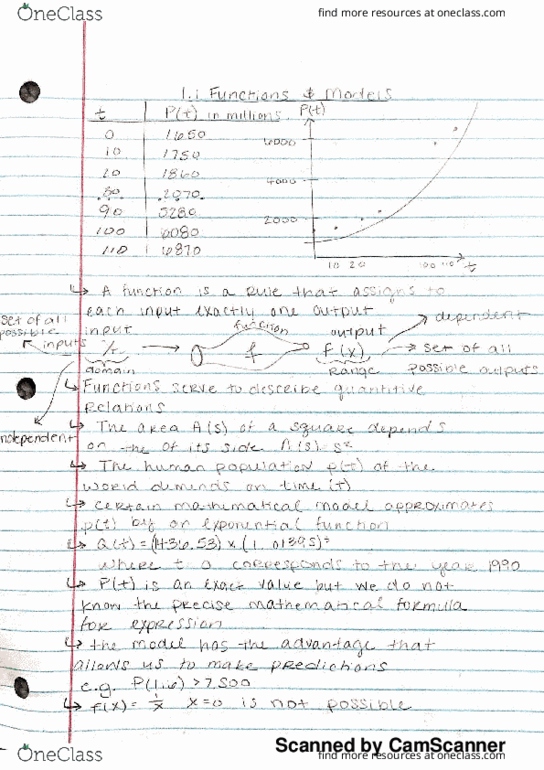 OneClass
find more resources at oneclass.com
1.1 Functions & Models
t P(t) in millions P(t)
0 1650
10 1750
20 1860
2070
90 5280
100 6080
110 6870
6000
4000
2000
10 20 100 110 t
↳ A function is a Rule that assigns to
each input exactly one output
set of all possible inputs
input
function
output
dependent
f
f(x)
set of all possible outputs
domain
Range
independent
↳ Functions serve to describe quantitive
Relations
↳ The area A(s) of a square depends
on the of its side A(s) s²
↳ The human population p(t) of the
world demends on time (t)
↳ certain mathematical model approximates
p(t) by on exponential function
↳ Q(t) = (1436.53) x (1.01395)
where t 0 corresponds to the year 1990
↳ P(t) is an exact value but we do not
know the precise mathematical formula
for expression
↳ the model has the advantage that
allows us to make predictions
e.g. >7,500
↳ f(x) = 1/x x=0 is not possible
Scanned by CamScanner
OneClass
find more resources at oneclass.com